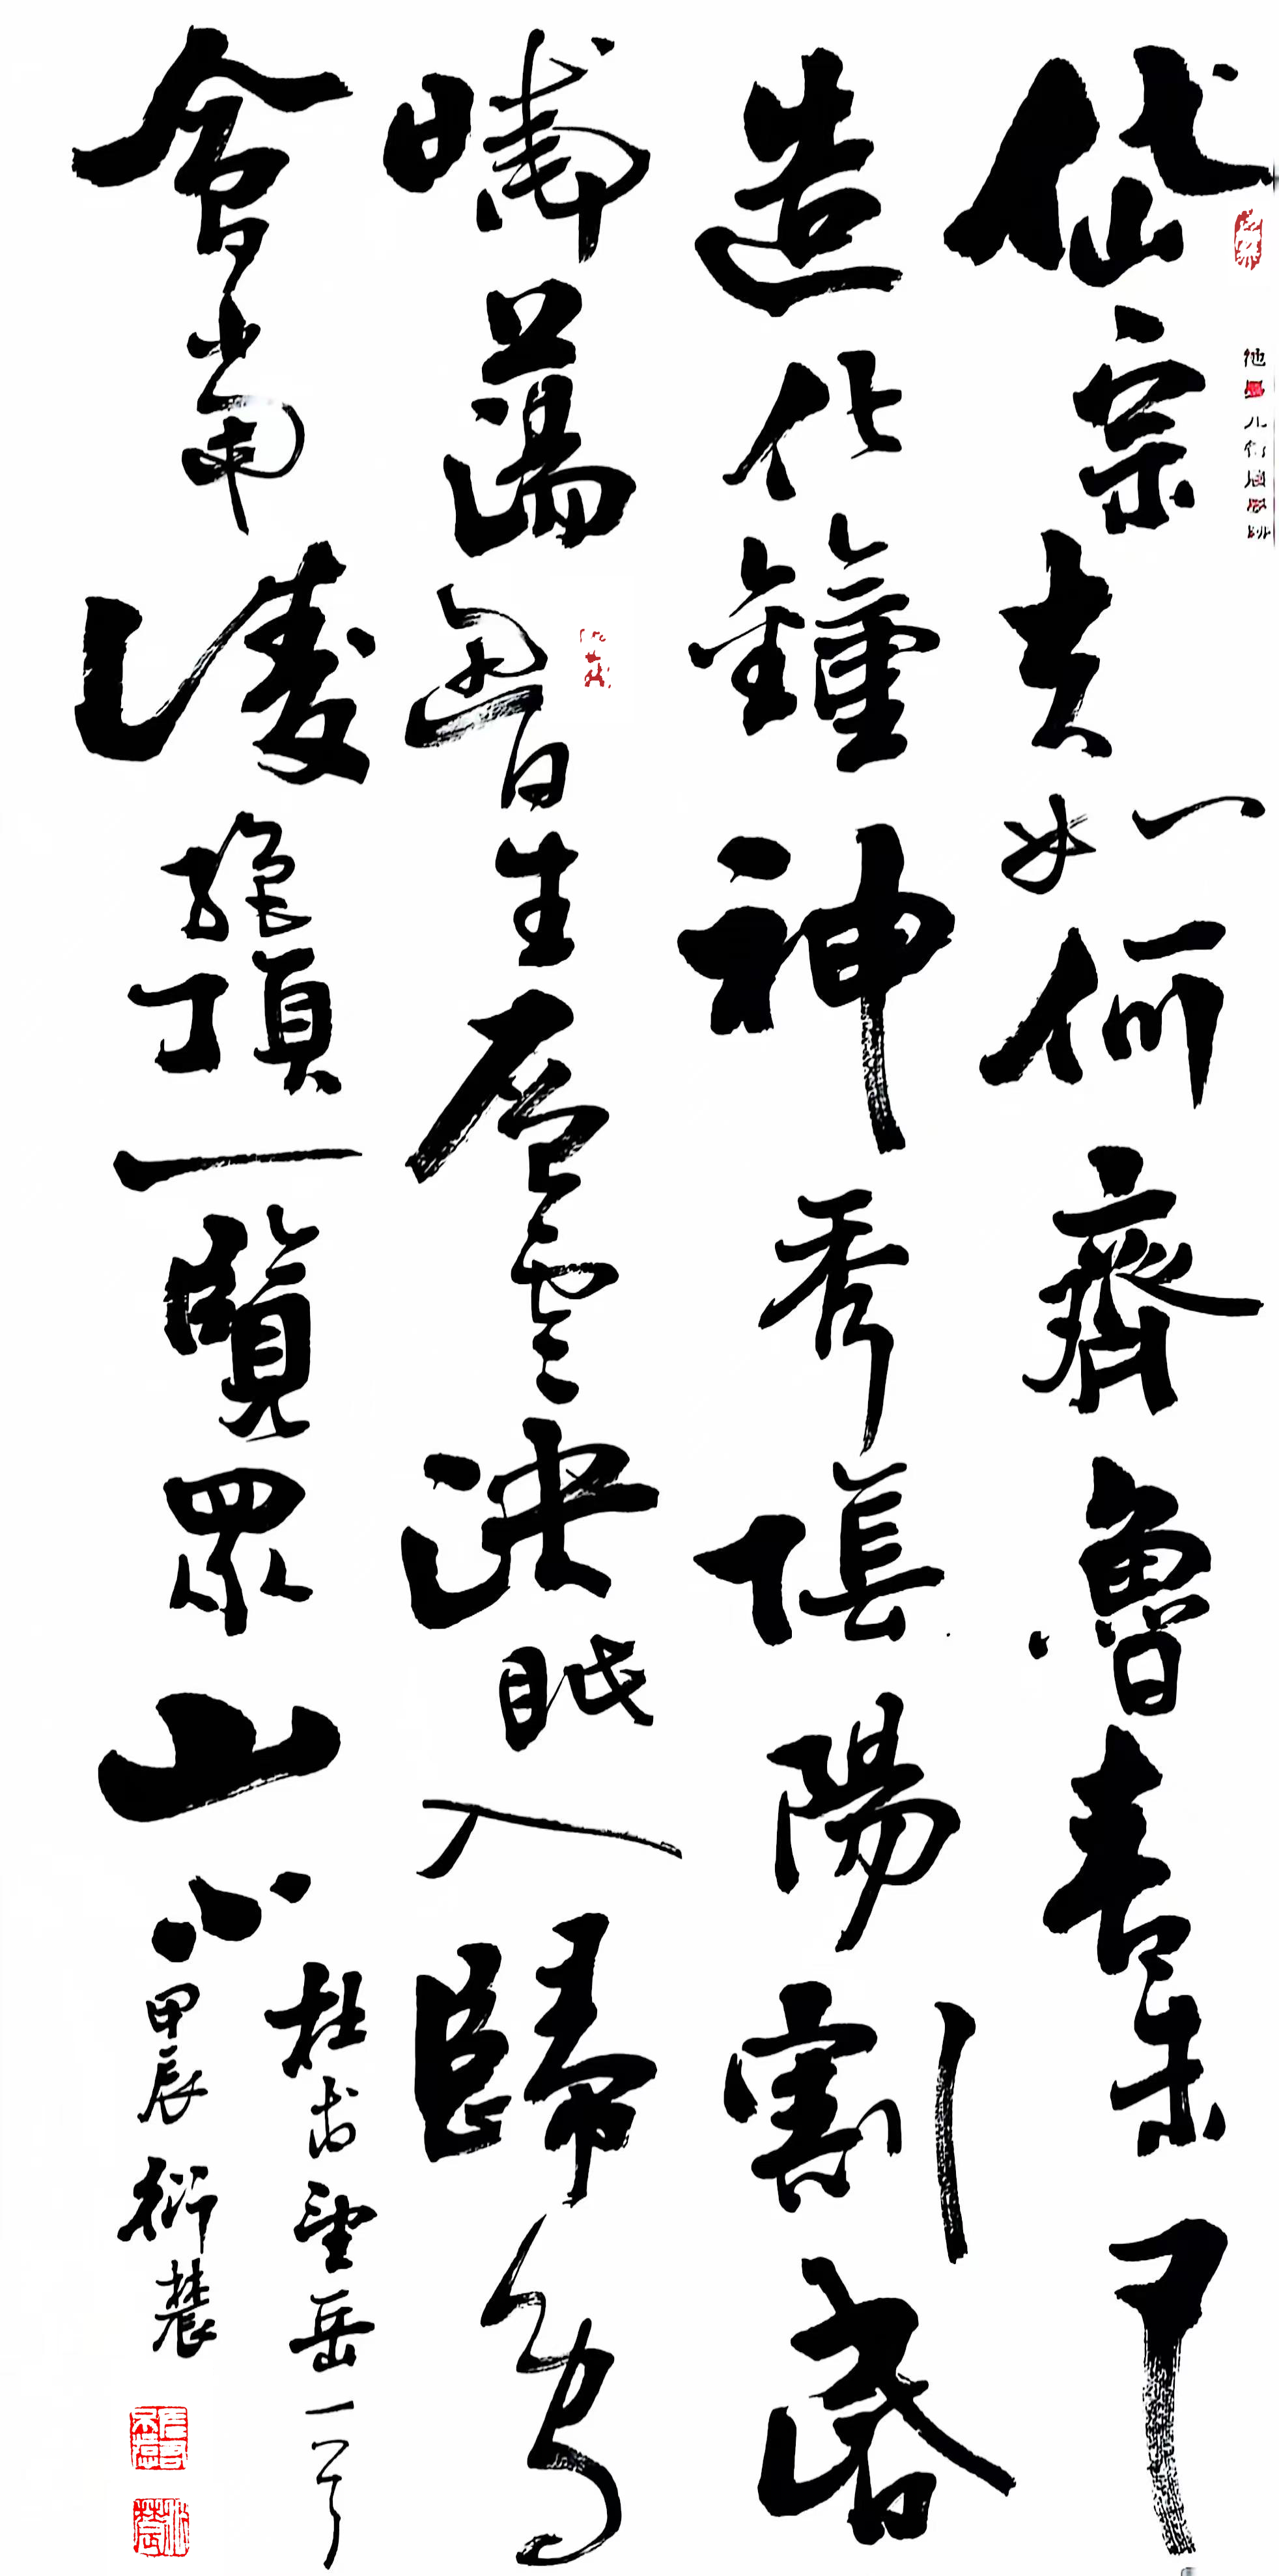 岱宗夫如何齊魯青未了
造化鐘神秀陰陽割昏
曉蕩胸生層雲決眥入歸鳥
會當凌絕頂一覽眾山小
杜甫望岳一首
甲辰衍辳